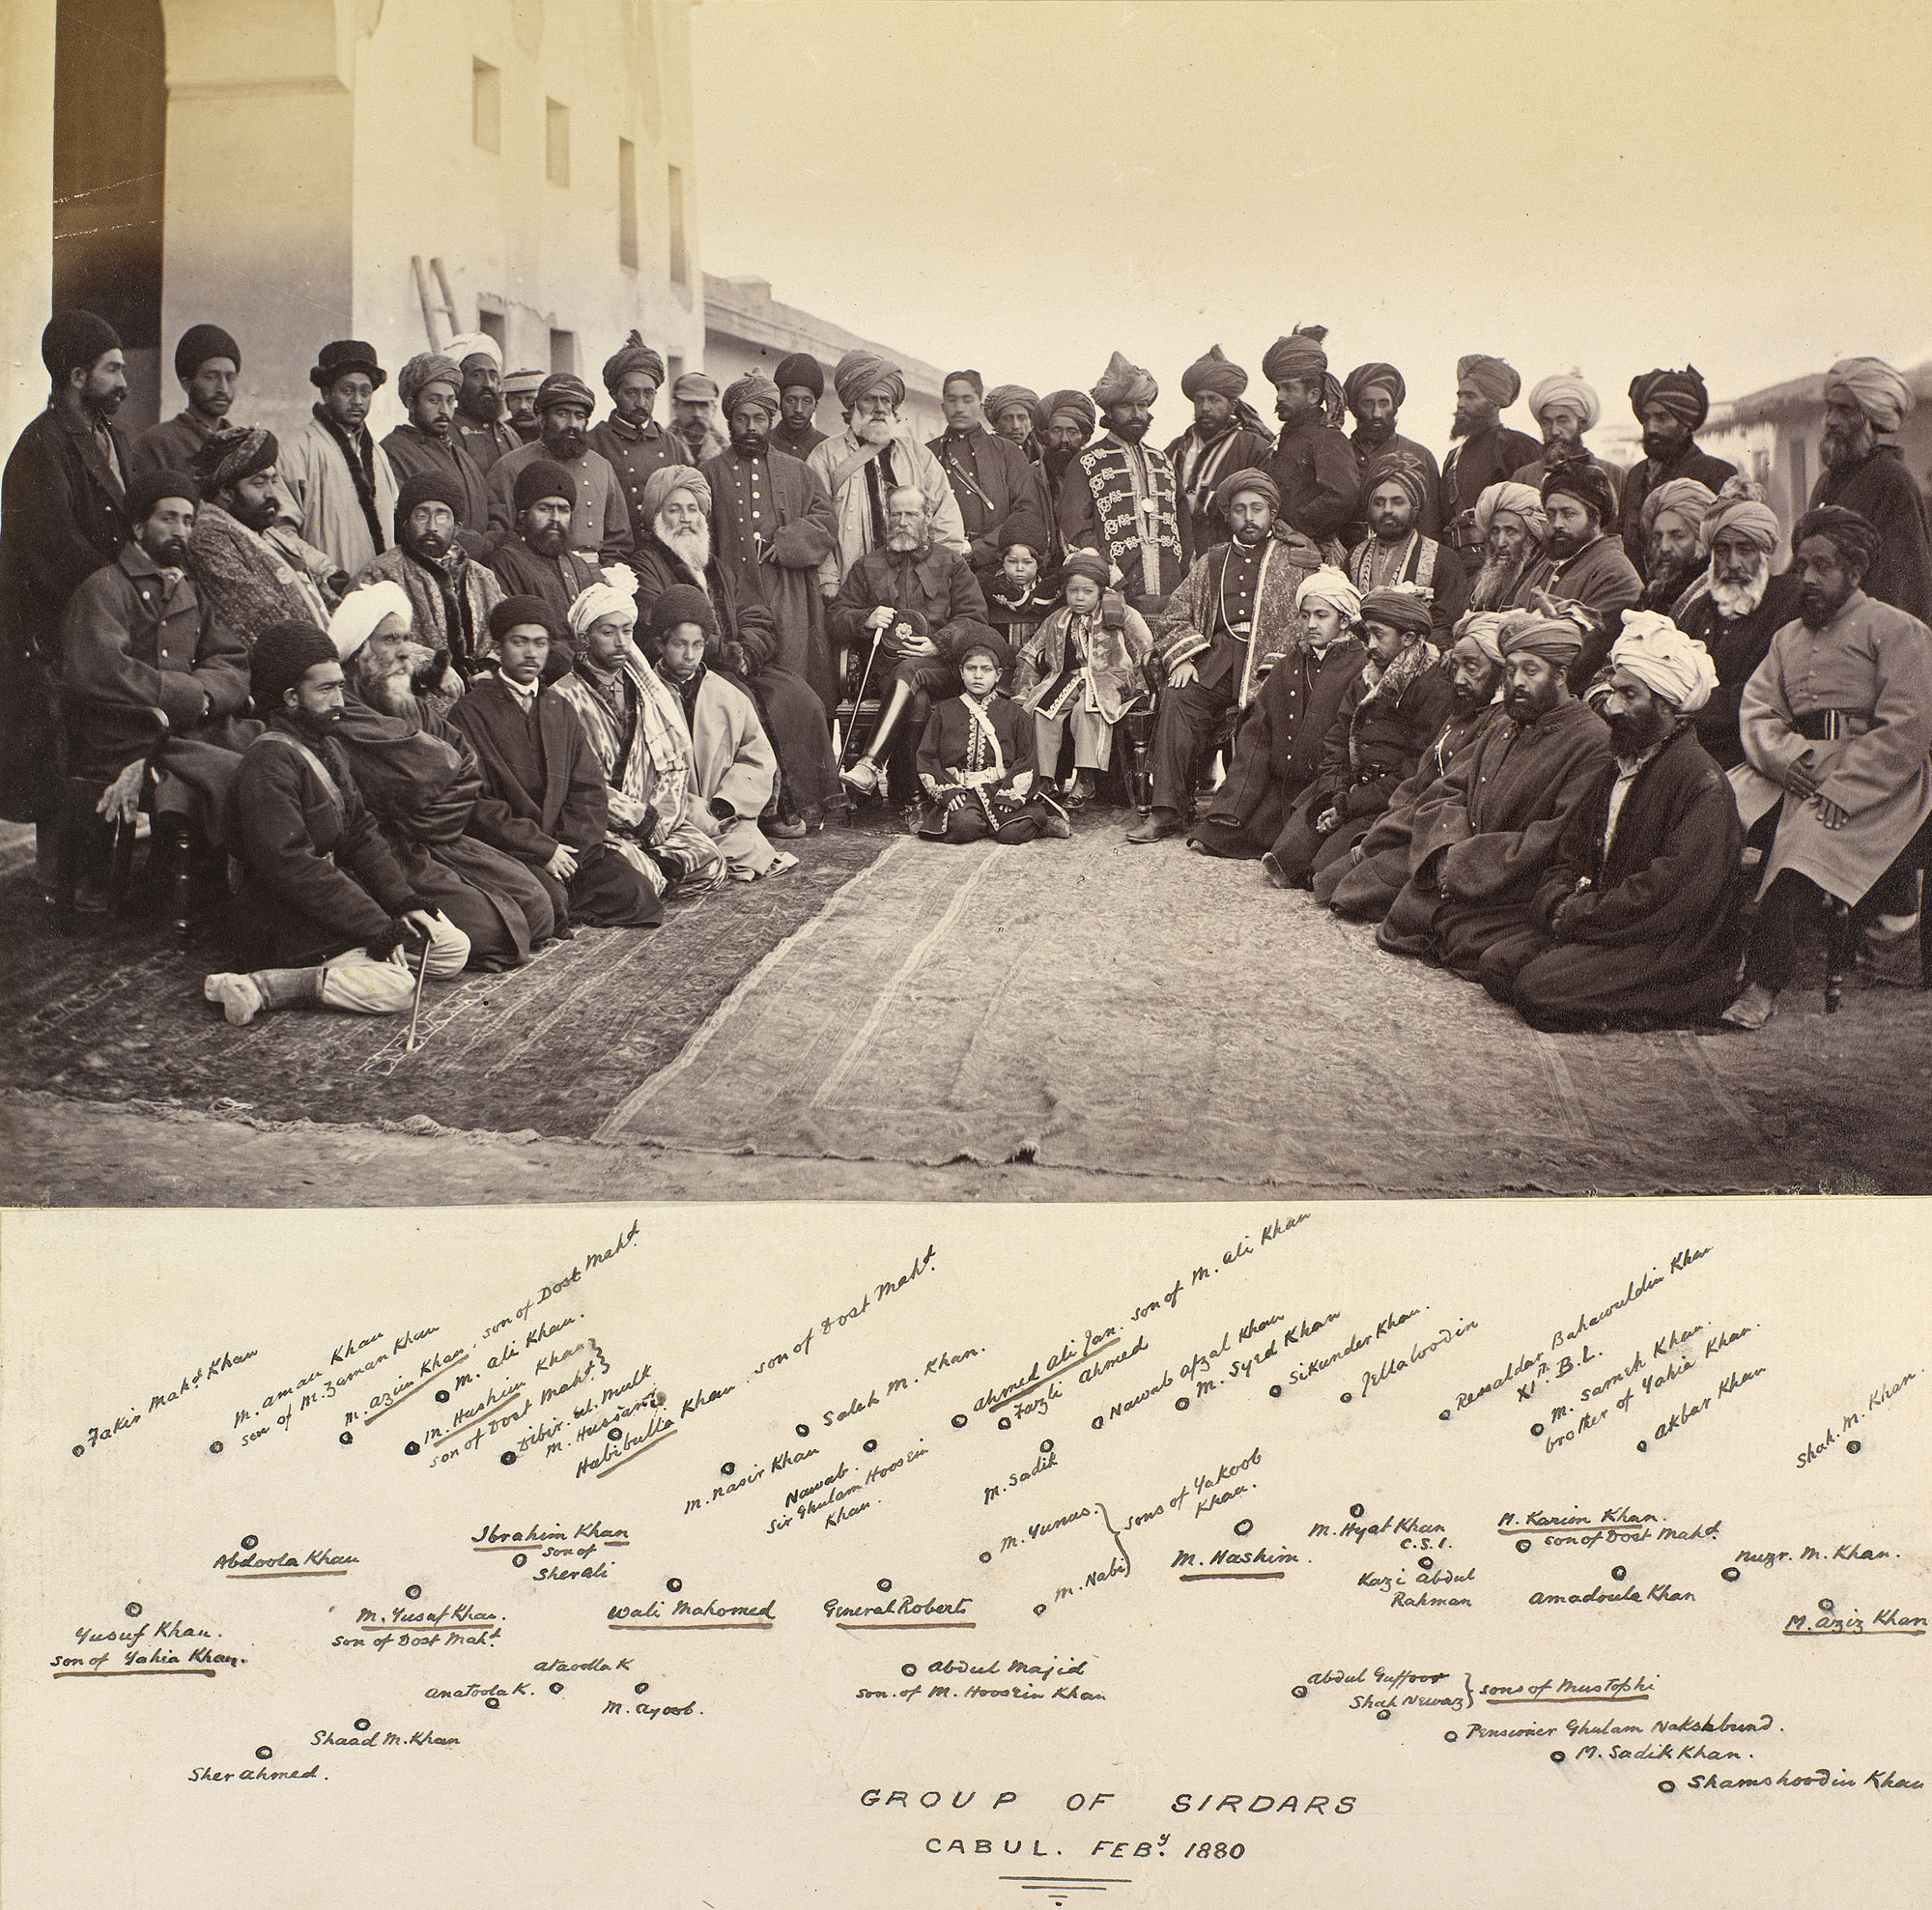 Fakir Mahd. Khan
M. Aman Khan
son of M. Zaman Khan
M. Azim Khan, son of Dost Mahd.
M. Ali Khan.
M. Hashim Khan
son of Dost Mahd.
Dibir ul Mulk
M. Hussani
Habibulla Khan, son of Dost Mahd.
M. Nasir Khan
Saleh M. Khan.
Nawab.
Sir Ghulam Hoosein
Khan.
Ahmed Ali Jan. son of M. Ali Khan
Fazli Ahmed
M. Sadik
Nawab Afzal Khan
M. Syed Khan
Sikunder Khan.
Jellaloodin
Ressaldar Bahawuldin Khan
XIth. B.L.
M. Sameh Khan.
brother of Yahia Khan.
Akbar Khan
Shah. M. Khan.
Abdoola Khan
Ibrahim Khan
son of
Sherali
M. Yunus.
M. Nabi
sons of Yakoob
Khan.
M. Hashim.
M. Hyat Khan
C.S.I.
Kazi Abdul
Rahman
M. Karim Khan.
son of Dost Mahd.
Amadoula Khan
Nuzr. M. Khan.
M. Aziz Khan
Yusuf Khan.
son of Yahia Khan.
M. Yusuf Khan.
son of Dost Mahd.
Wali Mahomed
General Roberts
Ataoolla K
Anatoola K.
M. Ayoob.
Abdul Majid
son. of M. Hoosein Khan
Abdul Guffoor
Shah Newaz
sons of Mustophi
Shaad M. Khan
Sher Ahmed.
Pensioner Ghulam Nakshbund.
M. Sadik Khan.
Shamshoodin Khan
GROUP OF SIRDARS
CABUL. FEBy. 1880